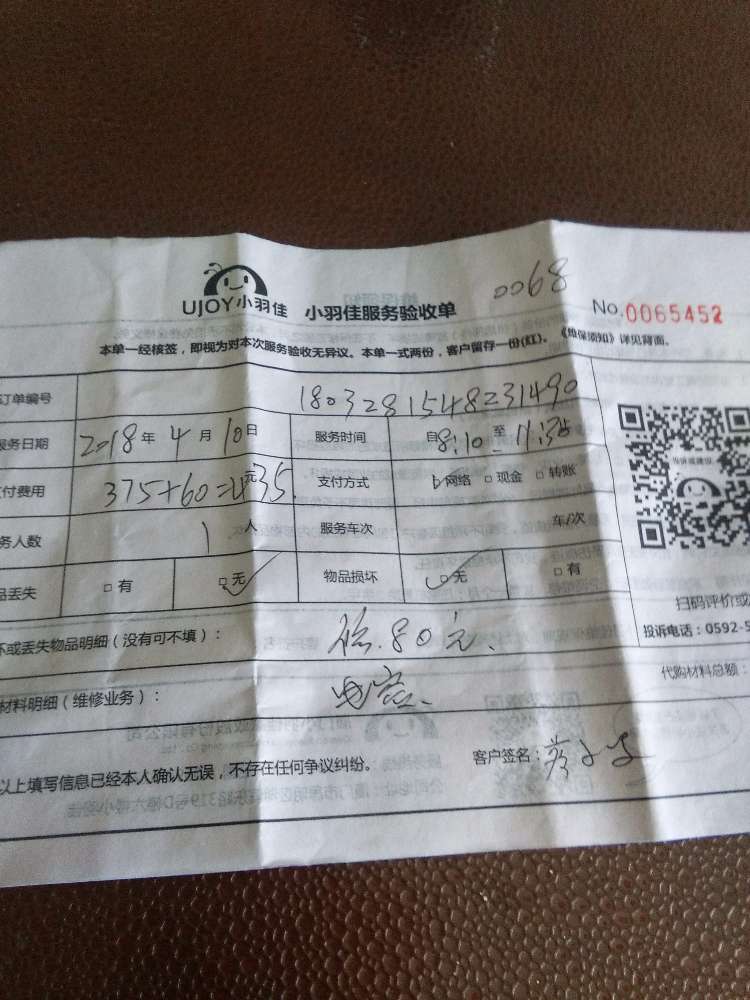 UJOY小羽佳 小羽佳服务验收单 0068 No.0065452
本单一经核签，即视为对本次服务验收无异议。本单一式两份，客户留存一份(红)。《维保须知》详见背面。
订单编号 1803281548231490
服务日期 2018年4月10日 服务时间 自8:10至11:35
付费用 375+60=435元 支付方式 网络 □现金 □转账
务人数 1人 服务车次 车/次
品丢失 □有 □无 物品损坏 □无 □有
坏或丢失物品明细（没有可不填）： 80元.
材料明细（维修业务）： 代购材料总额：
以上填写信息已经本人确认无误，不存在任何争议纠纷。 客户签名：
投诉或建议
扫码评价或
投诉电话：0592-5